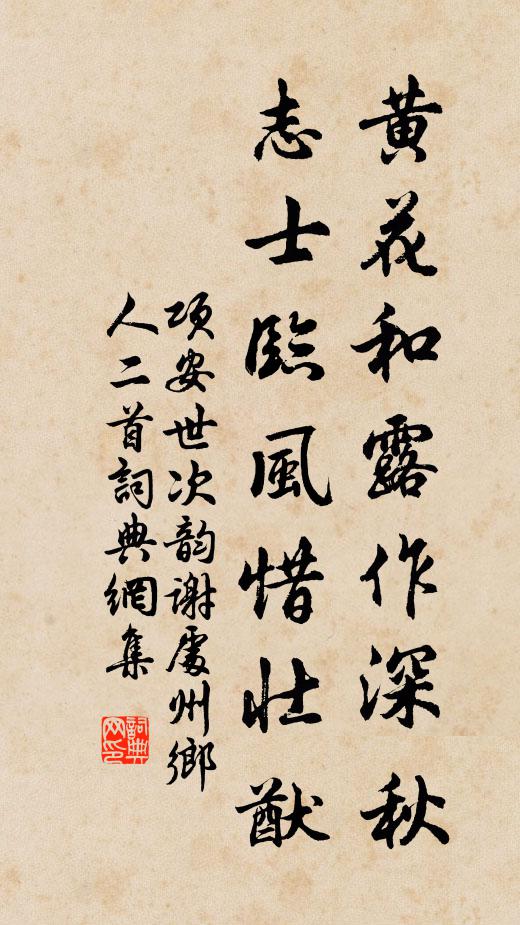 黄花和露作深秋
志士臨風惜壮猷
項安世次韵謝處州鄉
人二首詞典網集
詞典
网印